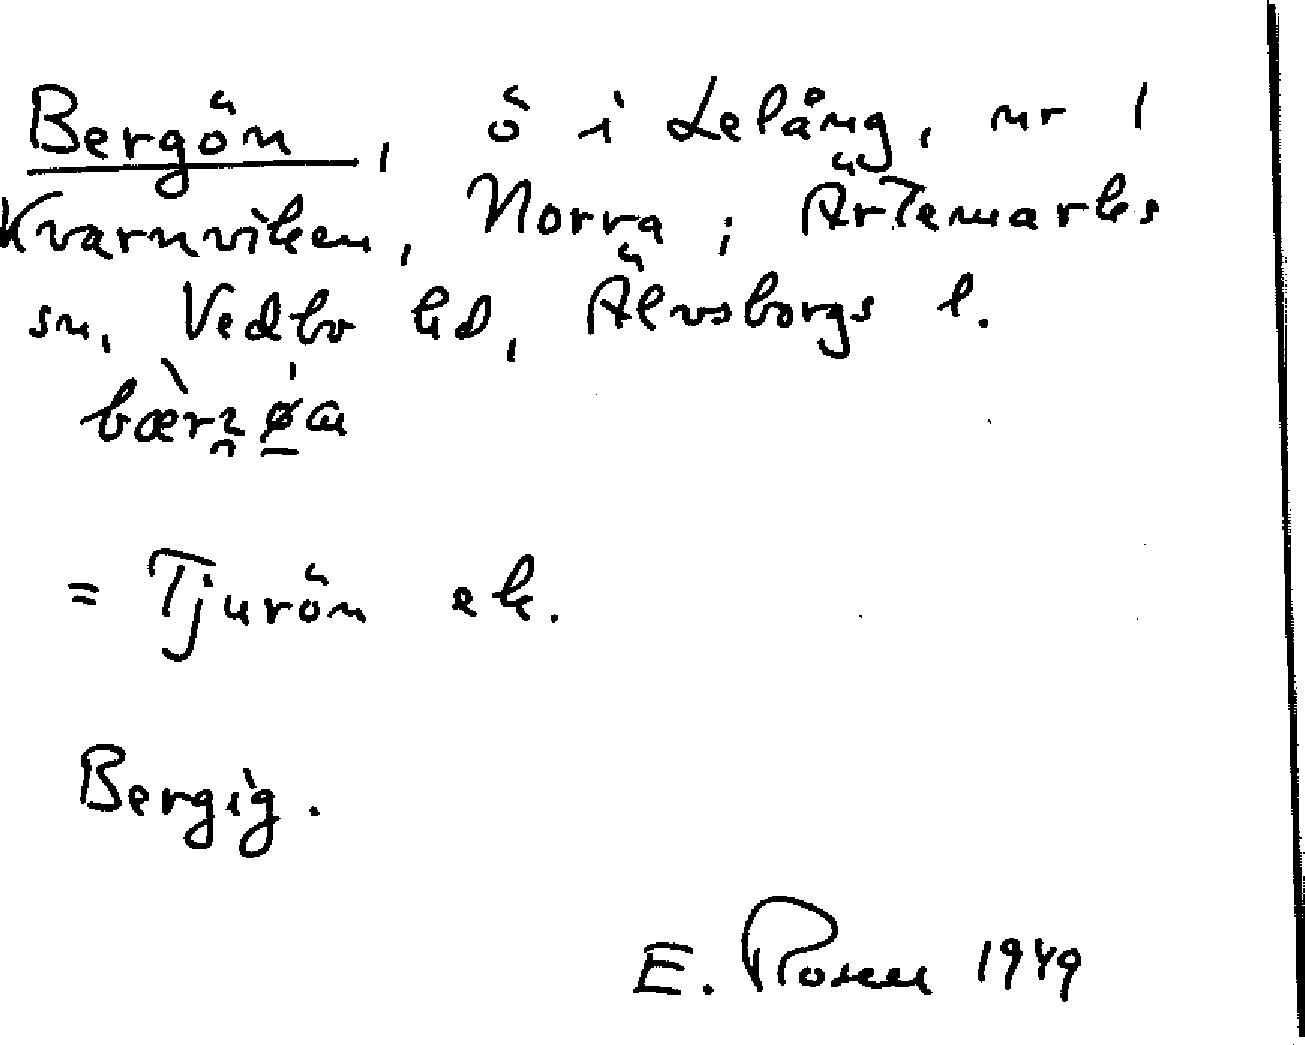 Bergön, ö i Lelång, nr 1
Kvarnviken, Norra ; Ärtemarks
sn, Vedbo hd, Älvsborgs l.
= Tjurön ek.
Bergig.
E. Rosen 1949